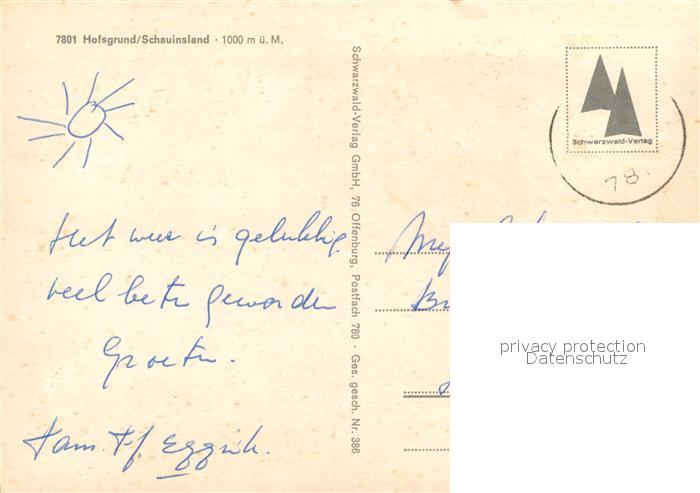 7801 Hofsgrund/Schauinsland · 1000 m ü. M.
Het weer is gelukkig
veel beter geworden
Groeten.
Fam.
Schwarzwald-Verlag GmbH, 76 Offenburg, Postfach 780 · Ges. gesch. Nr. 386
Schwarzwald-Verlag
78
privacy protection
Datenschutz